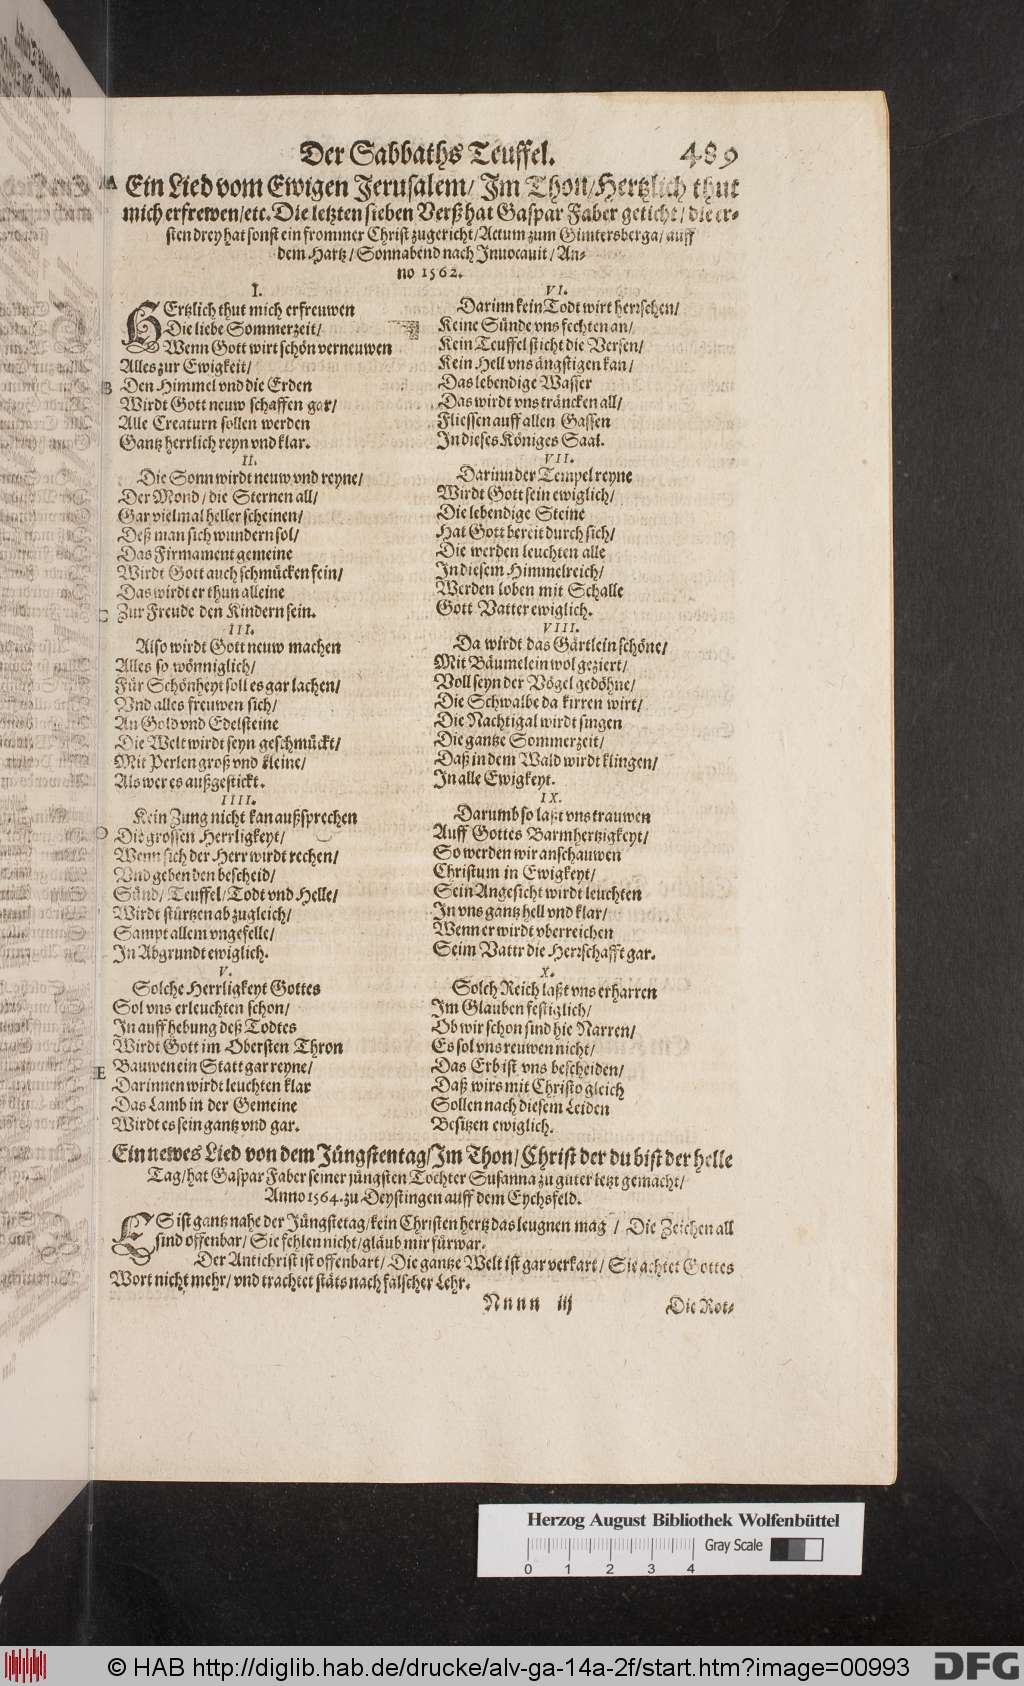 Der Sabbaths Teuffel. 489
A Ein Lied vom Ewigen Jerusalem/ Jm Thon/ Hertzlich thut
mich erfrewen/etc. Die letzten sieben Verß hat Gaspar Faber geticht/ die er-
sten drey hat sonst ein frommer Christ zugericht/ Actum zum Gimtersberga/ auff
dem Hartz/ Sonnabend nach Jnuocauit/ An-
no 1562.
I.
HErtzlich thut mich erfreuwen
Die liebe Sommerzeit/
Wenn Gott wirt schön verneuwen
Alles zur Ewigkeit/
B Den Himmel vnd die Erden
Wirdt Gott neuw schaffen gar/
Alle Creaturn sollen werden
Gantz herrlich reyn vnd klar.
II.
Die Sonn wirdt neuw vnd reyne/
Der Mond/ die Sternen all/
Gar vielmal heller scheinen/
Deß man sich wundern sol/
Das Firmament gemeine
Wirdt Gott auch schmücken fein/
Das wirdt er thun alleine
C Zur Freude den Kindern sein.
III.
Also wirdt Gott neuw machen
Alles so wönniglich/
Für Schönheyt soll es gar lachen/
Vnd alles freuwen sich/
An Gold vnd Edelsteine
Die Welt wirdt seyn geschmückt/
Mit Perlen groß vnd kleine/
Als wer es außgestickt.
IIII.
Kein Zung nicht kan außsprechen
D Die grossen Herrligkeyt/
Wenn sich der Herr wirdt rechen/
Vnd geben den bescheid/
Sünd/ Teuffel/ Todt vnd Helle/
Wirdt stürtzen ab zugleich/
Sampt allem vngefelle/
Jn Abgrundt ewiglich.
V.
Solche Herrligkeyt Gottes
Sol vns erleuchten schon/
Jn auffhebung deß Todtes
Wirdt Gott im Obersten Thron
E Bauwen ein Statt gar reyne/
Darinnen wirdt leuchten klar
Das Lamb in der Gemeine
Wirdt es sein gantz vnd gar.
VI.
Darinn kein Todt wirt herrschen/
Keine Sünde vns fechten an/
Kein Teuffel sticht die Versen/
Kein Hell vns ängstigen kan/
Das lebendige Wasser
Das wirdt vns träncken all/
Fliessen auff allen Gassen
Jn dieses Königes Saal.
VII.
Darinn der Tempel reyne
Wirdt Gott sein ewiglich/
Die lebendige Steine
Hat Gott bereit durch sich/
Die werden leuchten alle
Jn diesem Himmelreich/
Werden loben mit Schalle
Gott Vatter ewiglich.
VIII.
Da wirdt das Gärtlein schöne/
Mit Bäumelein wol geziert/
Voll seyn der Vögel gedöhne/
Die Schwalbe da kirren wirt/
Die Nachtigal wirdt singen
Die gantze Sommerzeit/
Daß in dem Wald wirdt klingen/
Jn alle Ewigkeyt.
IX.
Darumb so laßt vns trauwen
Auff Gottes Barmhertzigkeyt/
So werden wir anschauwen
Christum in Ewigkeyt/
Sein Angesicht wirdt leuchten
Jn vns gantz hell vnd klar/
Wenn er wirdt vberreichen
Seim Vattr die Herrschafft gar.
X.
Solch Reich laßt vns erharren
Jm Glauben festiglich/
Ob wir schon sind hie Narren/
Es sol vns reuwen nicht/
Das Erb ist vns bescheiden/
Daß wirs mit Christo gleich
Sollen nach diesem Leiden
Besitzen ewiglich.
Ein newes Lied von dem Jüngstentag/ Jm Thon/ Christ der du bist der helle
Tag/ hat Gaspar Faber seiner jüngsten Tochter Susanna zu guter letzt gemacht/
Anno 1564. zu Deystingen auff dem Eychsfeld.
ES ist gantz nahe der Jüngstetag/ kein Christen hertz das leugnen mag/ Die Zeichen all
sind offenbar/ Sie fehlen nicht/ gläub mir fürwar.
Der Antichrist ist offenbart/ Die gantze Welt ist gar verkart/ Sie achtet Gottes
Wort nicht mehr/ vnd trachtet stäts nach falscher Lehr.
Nnnn iij Die Rot-
Herzog August Bibliothek Wolfenbüttel
Gray Scale
0 1 2 3 4
© HAB http://diglib.hab.de/drucke/alv-ga-14a-2f/start.htm?image=00993 DFG